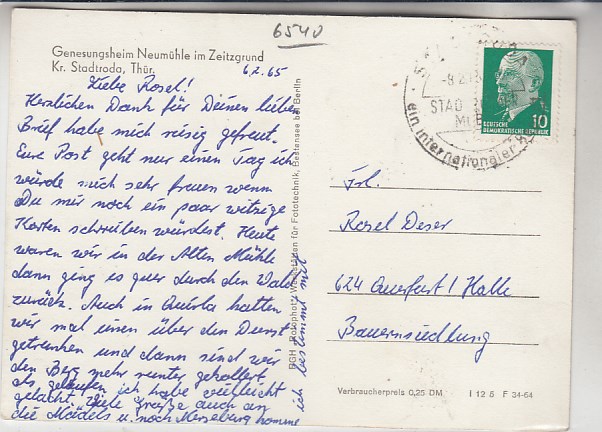 6540
Genesungsheim Neumühle im Zeitzgrund
Kr. Stadtroda, Thür.
6.2.65
Liebe Rosel!
Herzlichen Dank für Deinen lieben
Brief habe mich riesig gefreut.
Eure Post geht nur einen Tag ich
würde mich sehr freuen wenn
Du mir noch ein paar witzige
Karten schreiben würdest. Heute
waren wir in der Alten Mühle
dann ging es quer durch den Wald
zurück. Auch in Quirla hatten
wir mal einen über den Dienst
getrunken und dann sind wir
den Berg mehr runter gekollert
als gelaufen ich habe vielleicht
gelacht. Viele Grüße auch an
die Mädels u. nach Merseburg komme
ich bestimmt mit
BGH Rotophot Werkstätten für Fototechnik, Bestensee bei Berlin
STAD
ein internationaler
DEUTSCHE
DEMOKRATISCHE REPUBLIK
10
Frl.
Rosel Deser
424 Querfurt / Halle
Bauernsiedlung
Verbraucherpreis 0,25 DM
I 12 5 F 34-64